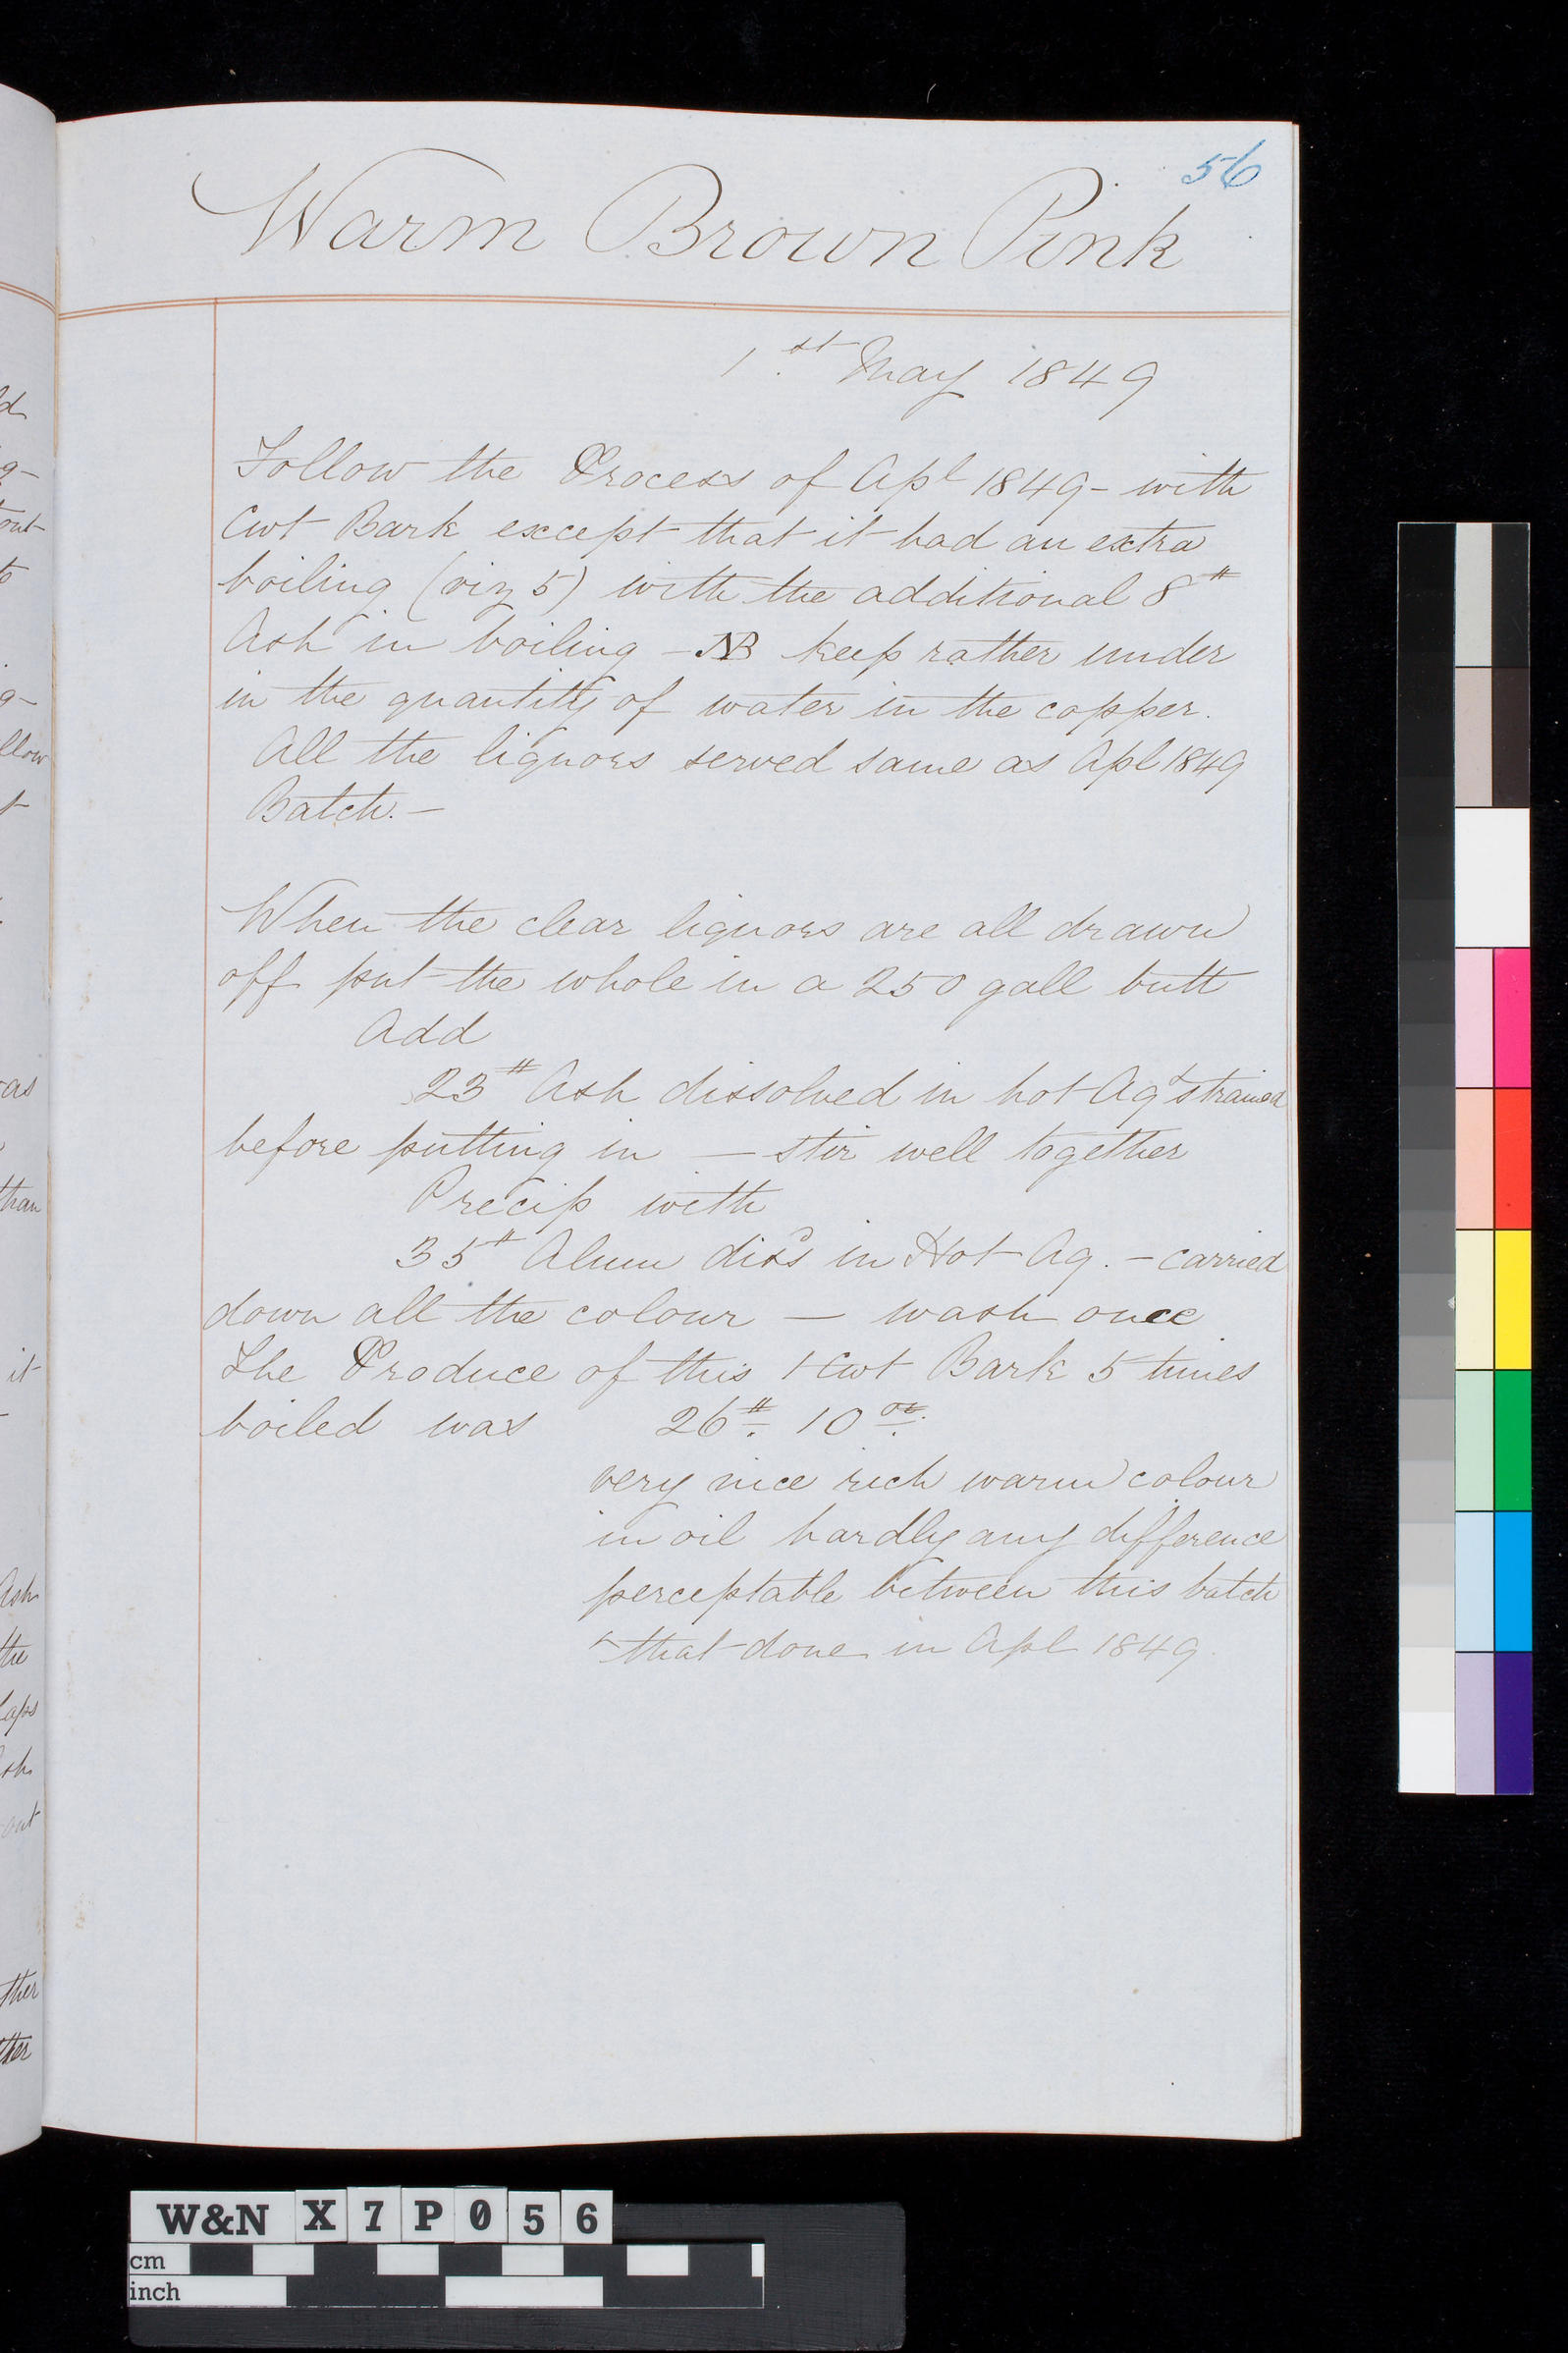 56
Warm Brown Pink
1st May 1849
Follow the Process of Apl 1849 - with
Cwt Bark except that it had an extra
boiling (viz 5) with the additional 8#
Ash in boiling - NB keep rather under
in the quantity of water in the copper.
All the liquors served same as Apl 1849
Batch. -
When the clear liquors are all drawn
off put the whole in a 250 gall butt
Add
23# Ash dissolved in hot Aq & strained
before putting in - stir well together
Precip with
35# Alum diss'd in Hot Aq. - carried
down all the colour - wash once
The Produce of this 1 Cwt Bark 5 times
boiled was 26# 10 oz.
very nice rich warm colour
in oil hardly any difference
perceptable between this batch
& that done in Apl 1849
W&N X7P056
cm
inch